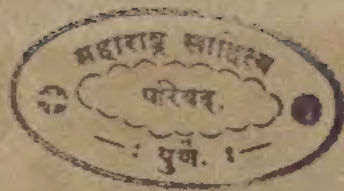 महाराष्ट्र साहित्य
परिषद्.
—: पुणें. :—